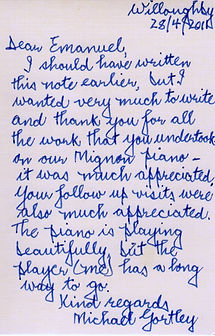 Willoughby
28/4/2011
Dear Emanuel,
I should have written
this note earlier, but I
wanted very much to write
and thank you for all
the work that you undertook
on our Mignon piano –
it was much appreciated.
Your follow up visits were
also much appreciated.
The piano is playing
beautifully, but the
player (me) has a long
way to go.
Kind regards
Michael Gortley